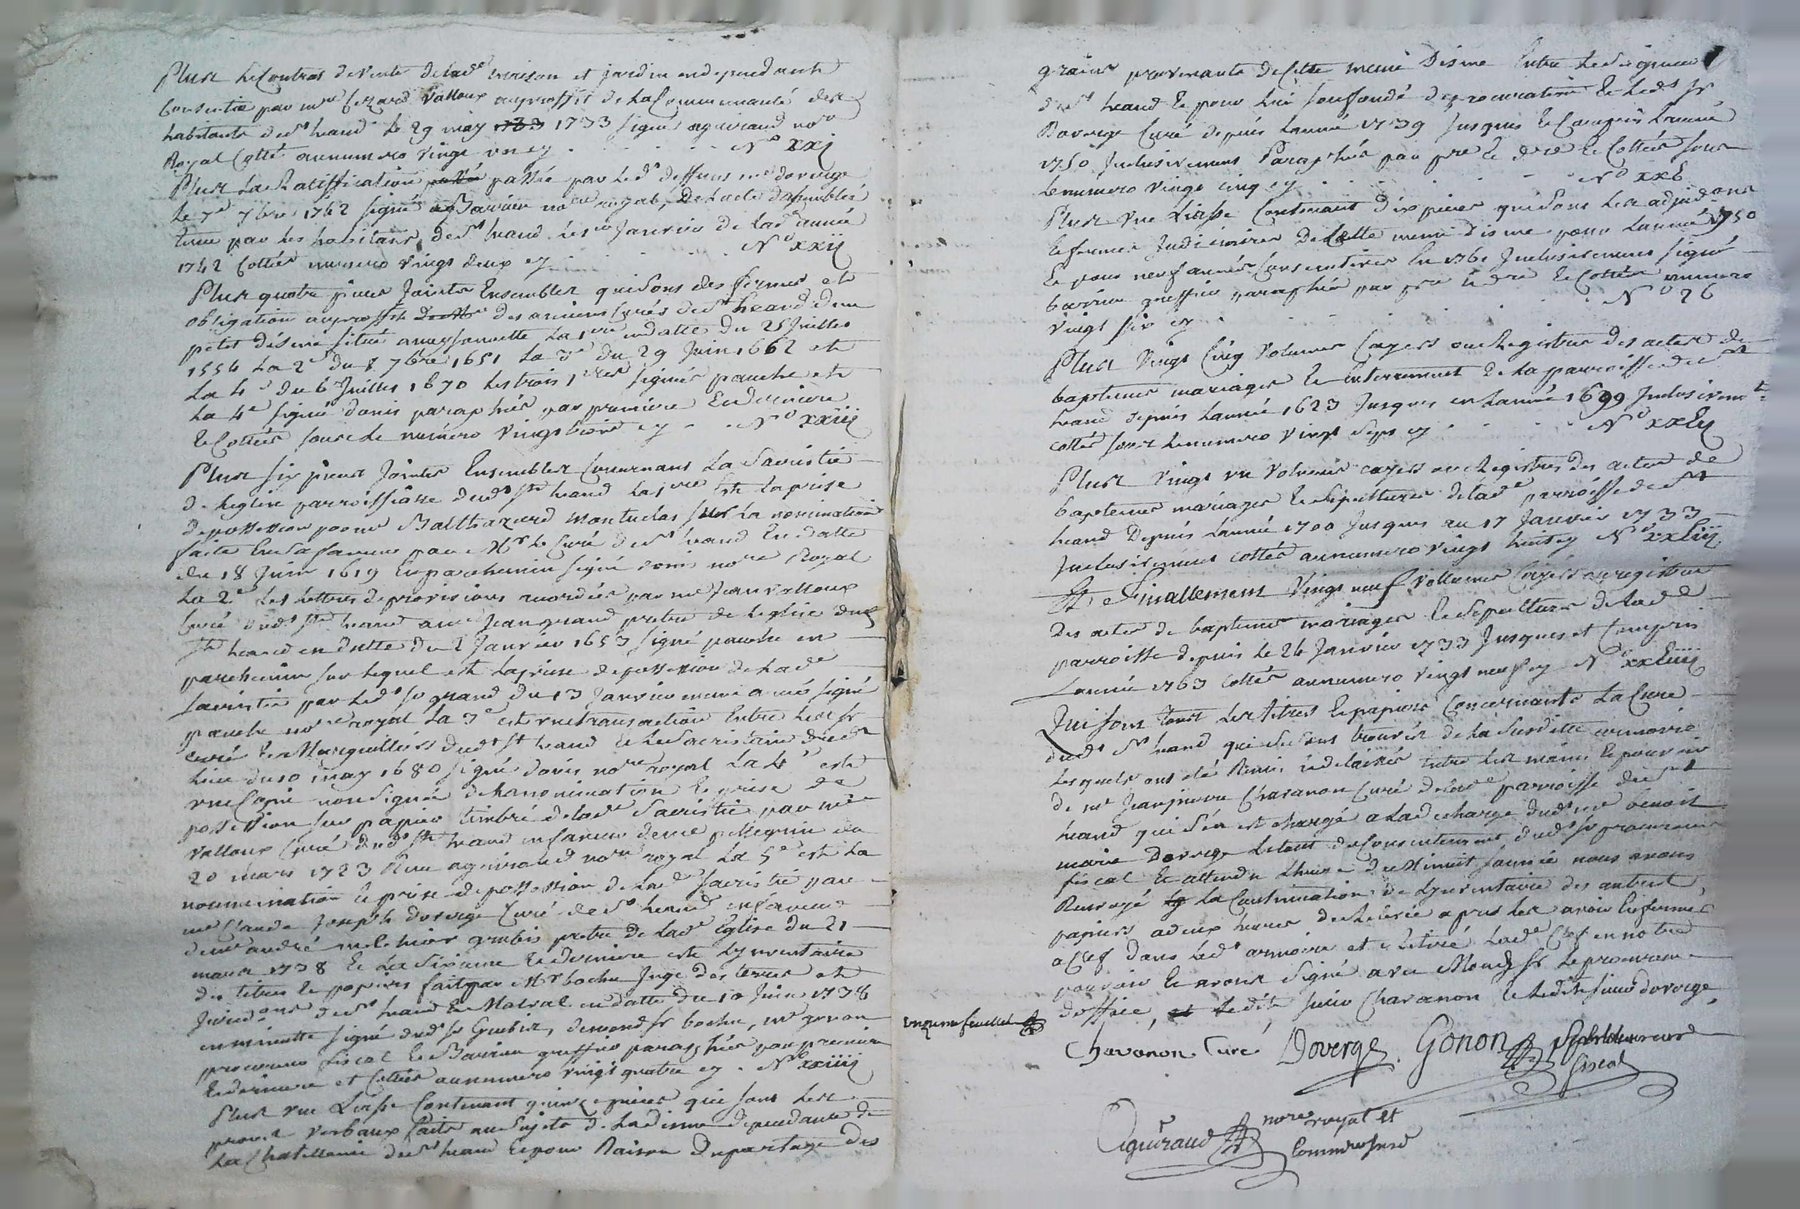 Plus le Contrat de vente de lad.e maison et jardin en dependants
Consentie par m.re Cezard Valloux au proffit de la Communauté des
habitants de s.t heand le 29 may 1733 1733 signé aguiraud no.re
Royal Cotté au numero vingt un cy . . . . . . N.o xxj
Plus la Ratiffication passée par led. deffunt m.re doverge
le 7.e 7bre 1742 signé Barrieu no.re royal, De l'acte d'assemblée
tenue par les habitans de s.t heand le Janvier de lad. année
1742 Cottée numero vingt deux cy . . . . . . N.o xxij
Plus quatre pieces Jointes Ensembles qui sont des fermes et
obligation au proffit des anciens Curés de s.t heand d'une
petite disme située la 1.ere en datte du 25 Juillet
1554 La 2.e du 8 7bre 1651 La 3.e du 29 Juin 1662 et
La 4.e du 6 Juillet 1670 les trois 1.eres signées panche et
La 4.e signé donis paraphées par premiere et derniere
et Cottées sous le numero vingt trois cy . . N.o xxiij
Plus six pieces Jointes Ensembles Concernant La Sacristie
de l'eglise parroissiale dud. s.t heand La 1.ere est la prise
de possession pour m.re Balthazard montuclas sur La nomination
faite En sa faveur par M.r le Curé de s.t heand En datte
du 18 Juin 1619 En parchemin signé donis no.re Royal
La 2.e Les lettres de provisions accordées par m.re Jean valloux
Curé dud. s.t heand a m.re Jean grand pretre de l'eglise dud.
s.t heand en datte du 2 Janvier 1653 signé panche en
parchemin sur lequel est La prise de possession de lad.e
sacristie par led. s.r grand du 13 Janvier meme année signé
panche no.re royal La 3.e est une transaction Entre led. s.r
curé les Marguilliers dud. s.t heand et le Sacristain dud.
lieu du 10 may 1680 signé donis no.re royal La 4.e est
une Copie non signée de la nomination et prise de
possession sur papier timbré de lad.e Sacristie par m.re
valloux Curé dud. s.t heand en faveur de m.re pellegrin du
20 mars 1723 Reçu aguiraud no.re royal La 5.e est La
nomination et prise de possession de lad.e sacristie par
m.re Claude Joseph doverge Curé de s.t heand en faveur
de m.re andré melchior grubis pretre de lad.e Eglise du 21
mars 1738 Et La sixieme et derniere est L'ynventaire
des titres et papiers fait par M.r bochu Juge des terres et
Jurid.ons de s.t heand et Malval en datte du 10 Juin 1738
en minutte signé dud. s.r Grubis, dimond s.r bochu, m.re gonon
procureur fiscal et Barrieu greffier paraphées par premiere
et derniere et Cottées au numero vingt quatre cy . N.o xxiiij
Plus une Liasse Contenant quinze pieces qui sont les
procès verbaux faits au sujets de La disme dependante de
La Chatellenie de s.t heand Et pour Raison Du partage des
grains provenants de Cette meme Disme Entre le seigneur
de s.t heand et pour lui son fondé de procuration Et led. s.r
Doverge Curé depuis L'année 1739 Jusques et Compris L'année
1750 Inclusivement Paraphées par pre.re et dre.re et Cottées sous
le numero vingt cinq cy . . . . . . N.o xxv
Plus une Liasse Contenant dix pieces qui sont Les adjud.ons
et fermes Judiciaires De Cette meme disme pour L'année 1750
Et pour neuf années Consecutives En 1761 Inclusivement signé
barrieu greffier paraphées par pre.re et dre.re et Cottées numero
vingt six cy . . . . . . . . N.o 26
Plus Vingt Cinq Volumes Cayers ou Registres des actes de
baptemes mariages et enterrement de La parroisse de s.t
heand depuis L'année 1623 Jusques en L'année 1699 Inclusivem.t
cottés sous le numero vingt sept cy . . . . N.o xxvij
Plus vingt un volumes cayers ou Registres des actes de
baptemes mariages et Sepultures de lad.e parroisse de s.t
heand Depuis L'année 1700 Jusques au 17 Janvier 1733
Inclusivement cottés au numero vingt huit cy N.o xxviij
Et Finallement Vingt neuf vollumes Cayers ou registres
Des actes de baptemes mariages et Sepultures de lad.e
parroisse depuis le 26 Janvier 1733 Jusques et Compris
L'année 1763 cottés au numero vingt neuf cy N.o xxviiij
Qui sont Tous Les titres et papiers Concernants La Cure
dud. s.t heand qui se sont trouvés de la susditte armoire
Lesquels ont eté Remis et delaissés Entre les mains et pouvoir
de m.re Chavanon Curé de lad.e parroisse de s.t
heand qui s'en est chargé a la decharge dud. m.re benoit
marie Doverge Le tout du Consentement dud. s.r procureur
fiscal Et attendu L'heure de Nimuit sonnée nous avons
Renvoyé La Continuation de L'ynventaire des autres
papiers a deux heures de Relevée apres les avoir Enfermés
a Clef dans led. armoire et Retiré Lad.e Clef en notre
pouvoir et avons signé avec mond. s.r Le procureur
d'office, et led. sieur Chavanon et led. sieur doverge
onzieme feuillet
Chavanon Curé Doverge Gonon procureur
fiscal
Aguiraud no.re royal et
Commissaire